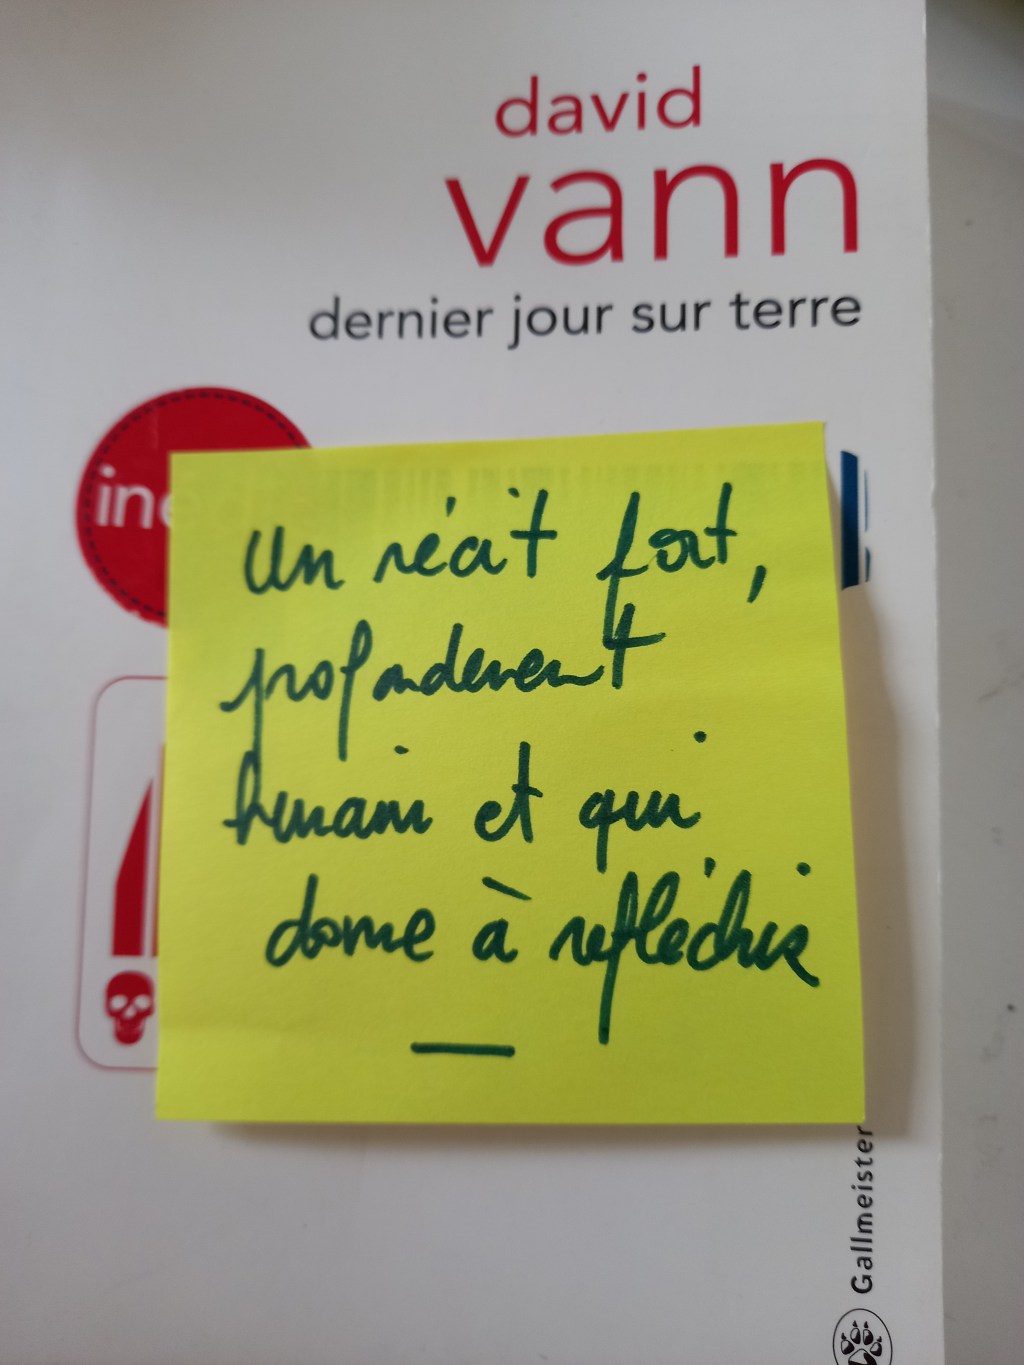 david
vann
dernier jour sur terre
iné
un récit fort,
profondément
humain et qui
donne à réfléchir
Gallmeister